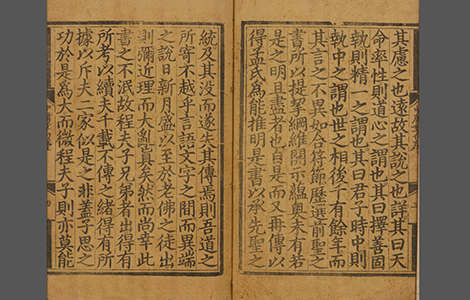 其慮之也遠故其說之也詳其曰天
命率性則道心之謂也其曰擇善固
執則精一之謂也其曰君子時中則
執中之謂也世之相後千有餘年而
其言之不異如合符節歷選前聖之
書所以提挈綱維開示蘊奧未有若
是之明且盡者也自是而又再傳以
得孟氏為能推明是書以承先聖之
統及其沒而遂失其傳焉則吾道之
所寄不越乎言語文字之間而異端
之說日新月盛以至於老佛之徒出
則彌近理而大亂真矣然而尚幸此
書之不泯故程夫子兄弟者出得有
所考以續夫千載不傳之緒得有所
據以斥夫二家似是之非蓋子思之
功於是為大而微程夫子則亦莫能